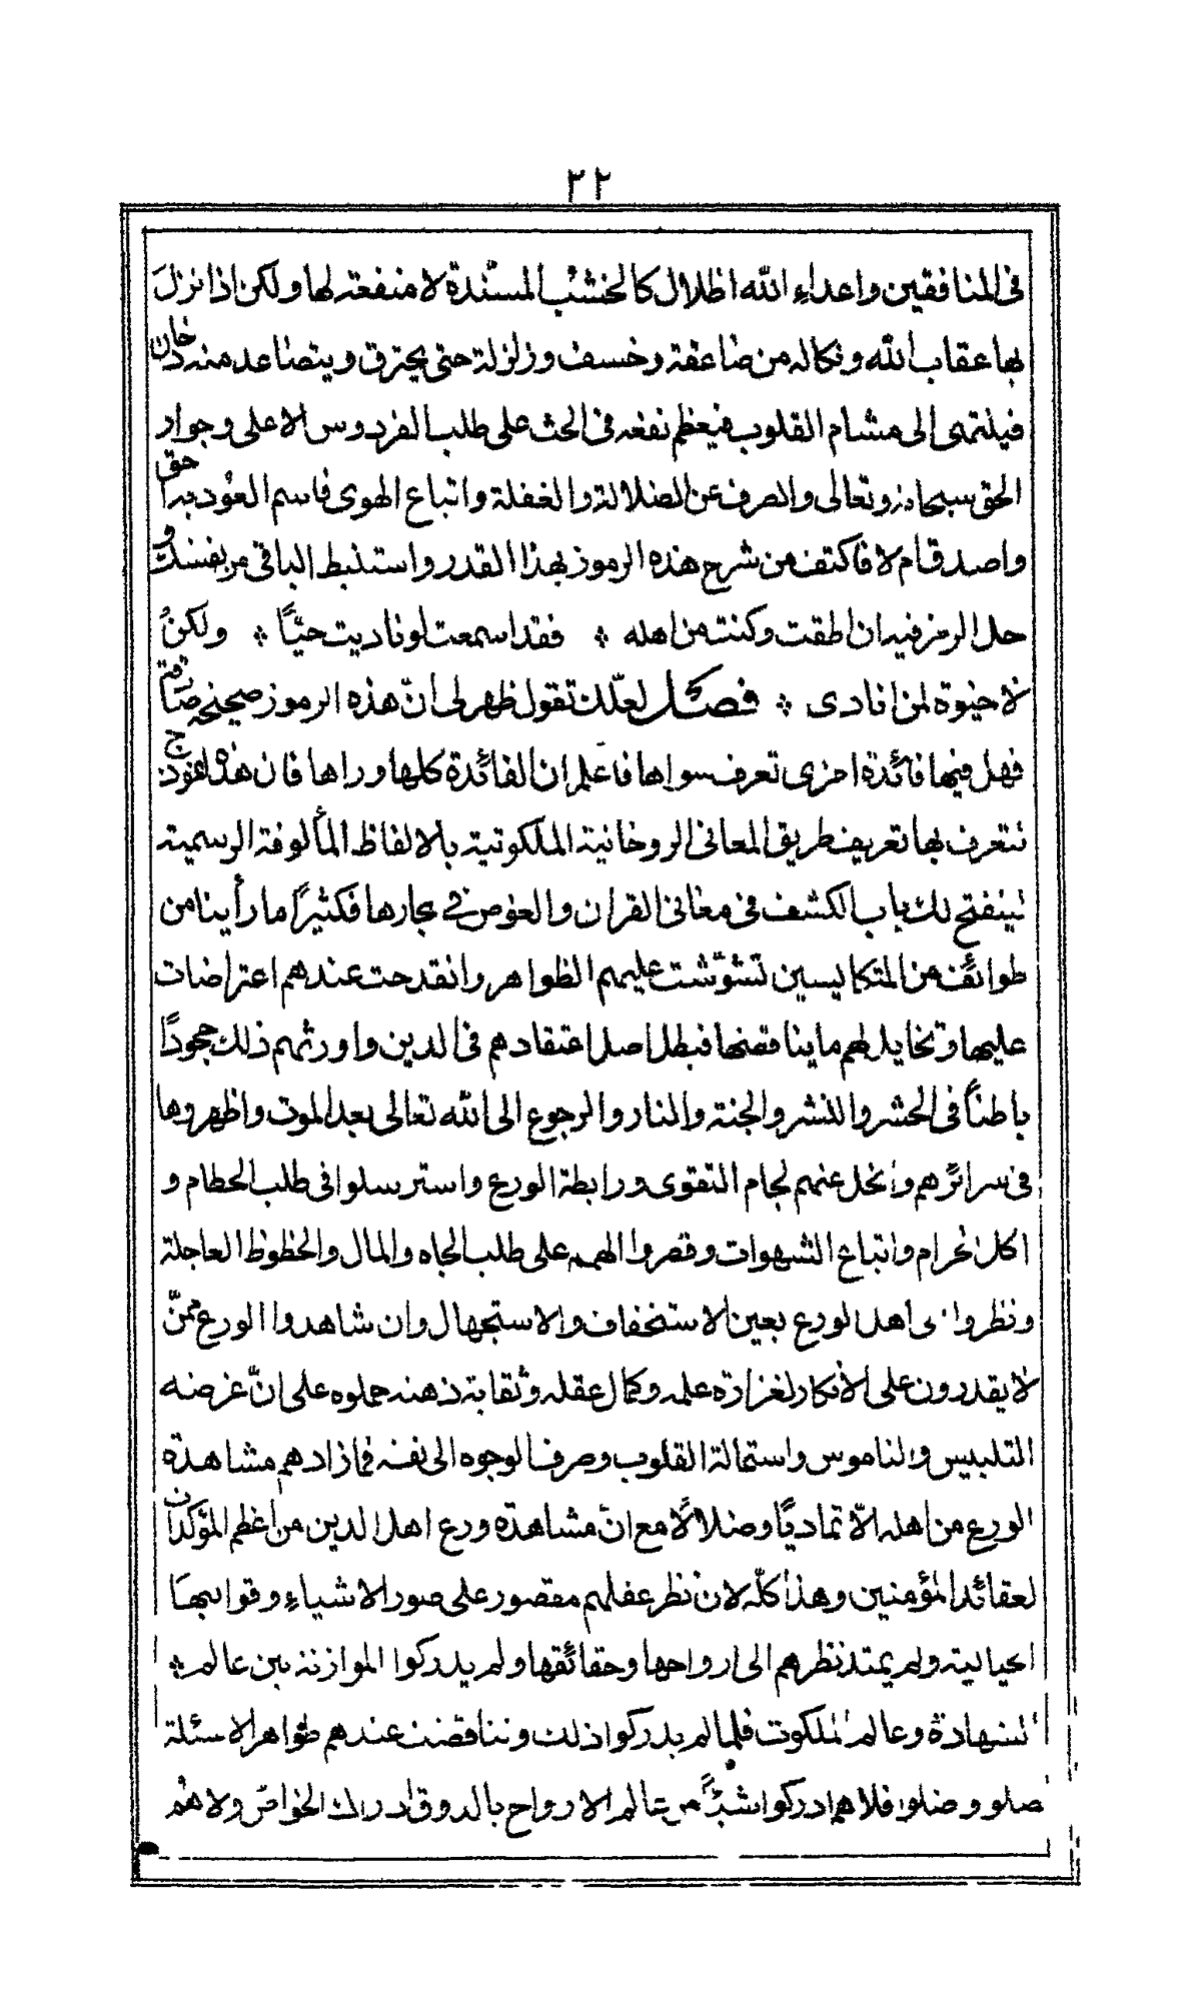 ٣٢
فى المنافقين واعداء الله اظلال كالخشب المسندة لا منفعة لها ولكن اذا نزل
بها عقاب الله ونكاله من صاعقة وخسف وزلزلة حتى يحترق ويتصاعد منه دخان
فيلتهى الى مشام القلوب فيعظم نفعه فى الحث على طلب الفردوس الاعلى وجوار
الحق سبحانه وتعالى والصرف عن الضلالة والغفلة واتباع الهوى فاسم العود به احق
واصدق ام لا فاكتف من شرح هذه الرموز بهذا القدر واستنبط الباقى من نفسك و
حل الرمز فيه ان اطقت وكنت من اهله ❊ فقد اسمعت لو ناديت حيًّا ❊ ولكن
لا حيوة لمن انادى ❊ فصل لعلك تقول ظهر لى انّ هذه الرموز صحيحة صادقة
فهل فيها فائدة اخرى تعرف سواها فاعلم ان الفائدة كلها وراها فان هذه انموذج
تتعرف بها تعريف طريق المعانى الروحانية الملكوتية بالالفاظ المألوفة الرسمية
لينفتح لك باب الكشف فى معانى القران والغوص فى بحارها فكثيرًا ما رأينا من
طوائف من المتكايسين تشوّشت عليهم الظواهر وانقدحت عندهم اعتراضات
عليها وتخايل لهم ما يناقضها فبطل اصل اعتقادهم فى الدين واورثهم ذلك جحودًا
باطنًا فى الحشر والنشر والجنة والنار والرجوع الى الله تعالى بعد الموت واظهروها
فى سرائرهم وانحل عنهم لجام التقوى ورابطة الورع واسترسلوا فى طلب الحطام و
اكل الحرام واتباع الشهوات وقصروا الهمم على طلب الجاه والمال والحظوظ العاجلة
ونظروا الى اهل الورع بعين الاستخفاف والاستجهال وان شاهدوا الورع ممّن
لا يقدرون على الانكار لغزارة علمه وكمال عقله وثقابة ذهنه حملوه على انّ غرضه
التلبيس والناموس واستمالة القلوب وصرف الوجوه الى نفسه فما زادهم مشاهدة
الورع من اهله الّا تماديًا وضلالًا مع انّ مشاهدة ورع اهل الدين من اعظم المؤكدات
لعقائد المؤمنين وهذا كلّه لان نظر عقلهم مقصور على صور الاشياء وقوالبها
الخيالية ولم يمتد نظرهم الى ارواحها وحقائقها ولم يدركوا الموازنة بين عالم ❊
الشهادة وعالم الملكوت فلما لم يدركوا ذلك وتناقضت عندهم ظواهر الاسئلة
ضلوا وضلوا فلا هم ادركوا شيئًا من عالم الارواح بالذوق ادراك الخواص ولا هم